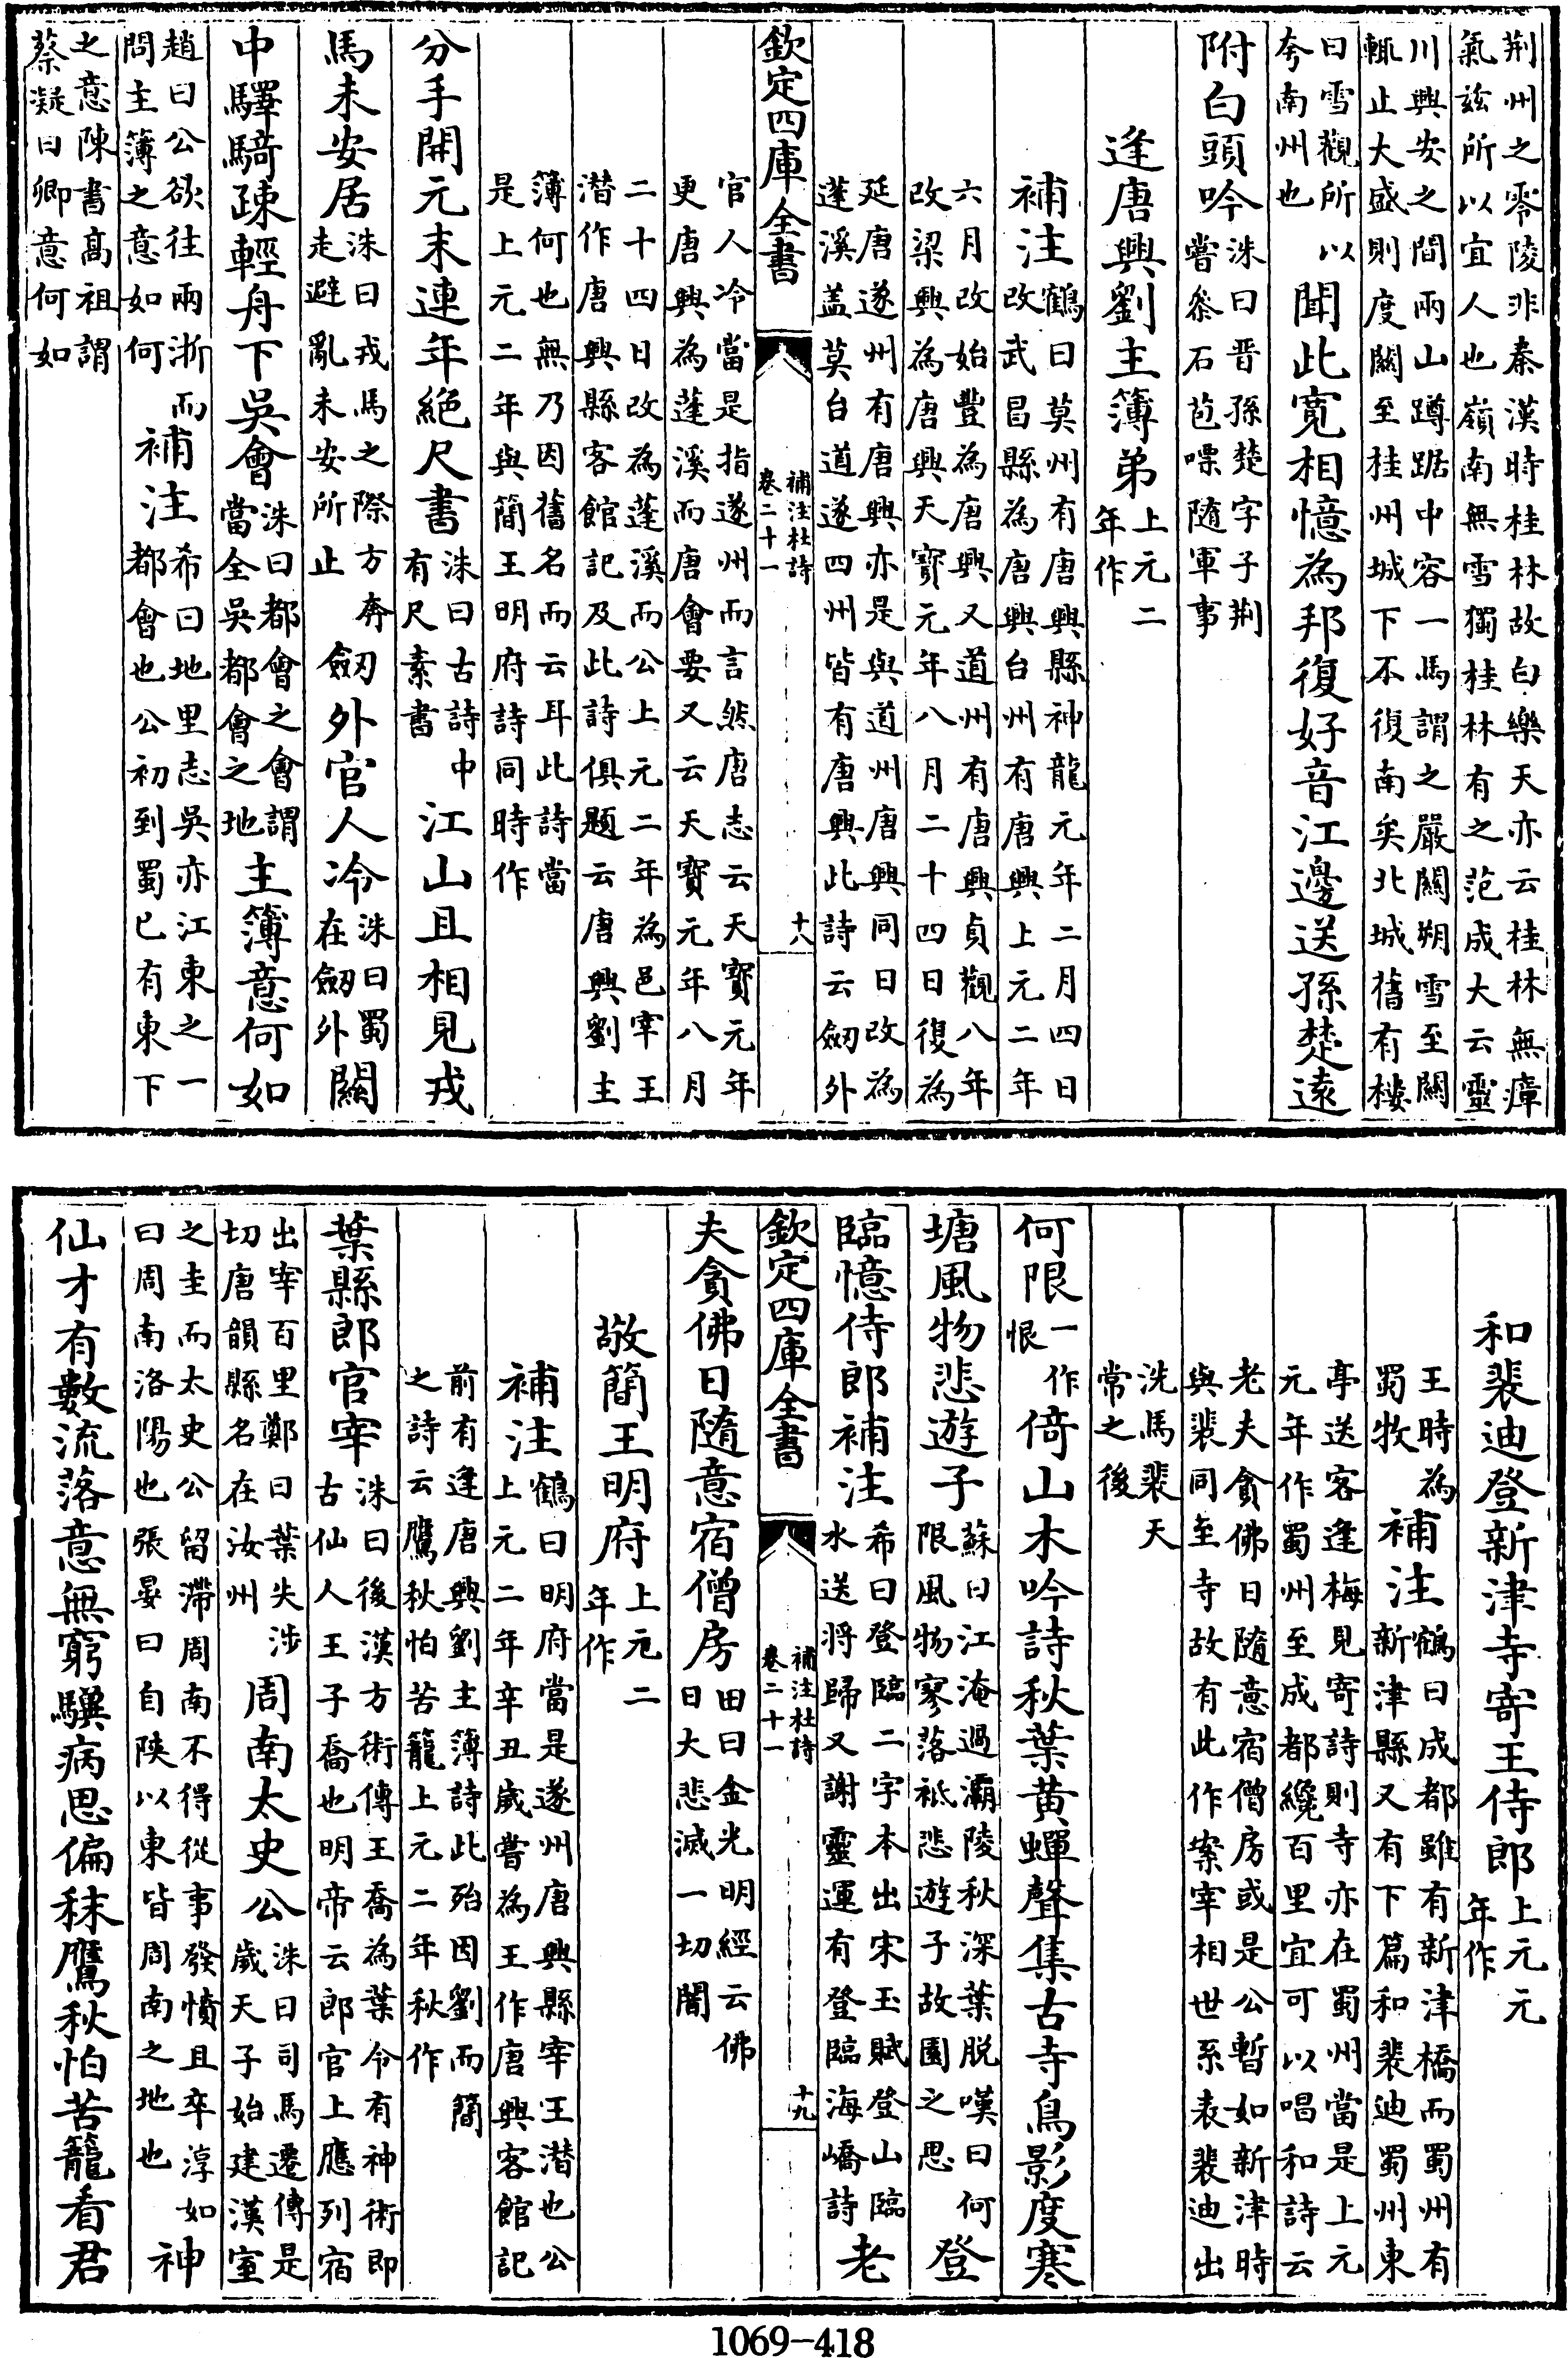 荆州之零陵非秦漢時桂林故白樂天亦云桂林無瘴
氣兹所以宜人也嶺南無雪獨桂林有之范成大云靈
川興安之間兩山蹲踞中容一馬謂之嚴關朔雪至關
輒止大盛則度關至桂州城下不復南矣北城舊有樓
曰雪觀所以夸南州也聞此寛相憶為邦復好音江邊送孫楚遠
附白頭吟洙曰晋孫楚字子荆嘗叅石苞嘌随軍事
逢唐興劉主簿弟上元二年作
補注鶴曰莫州有唐興縣神龍元年二月四日改武昌縣為唐興台州有唐興上元二年
六月改始豐為唐興又道州有唐興貞觀八年
改梁興為唐興天寶元年八月二十四日復為
延唐遂州有唐興亦是與道州唐興同日改為
蓬溪盖莫台道遂四州皆有唐興此詩云劒外
欽定四庫全書
補注杜詩
卷二十一
十八
官人冷當是指遂州而言然唐志云天寶元年
更唐興為蓬溪而唐會要又云天寶元年八月
二十四日改為蓬溪而公上元二年為邑宰王
潜作唐興縣客館記及此詩俱題云唐興劉主
簿何也無乃因舊名而云耳此詩當
是上元二年與簡王明府詩同時作
分手開元末連年絶尺書洙曰古詩中有尺素書江山且相見戎
馬未安居洙曰戎馬之際方奔走避亂未安所止劒外官人冷洙曰蜀在劒外關
中驛騎疎輕舟下吳會洙曰都會之會謂當全吳都會之地主簿意何如
趙曰公欲往兩浙而問主簿之意如何補注希曰地里志吳亦江東之一都會也公初到蜀已有東下
之意陳書髙祖謂
蔡凝曰卿意何如
和裴迪登新津寺寄王侍郎上元元年作
王時為蜀牧補注鶴曰成都雖有新津橋而蜀州有新津縣又有下篇和裴迪蜀州東
亭送客逢梅見寄詩則寺亦在蜀州當是上元
元年作蜀州至成都纔百里宜可以唱和詩云
老夫貪佛日随意宿僧房或是公暫如新津時
與裴同至寺故有此作案宰相世系表裴迪出
洗馬裴天
常之後
何限一作恨倚山木吟詩秋葉黄蟬聲集古寺鳥影度寒
塘風物悲遊子蘇曰江淹過灞陵秋深葉脱嘆曰何限風物寥落祗悲遊子故園之思登
臨憶侍郎補注希曰登臨二字本出宋玉賦登山臨水送將歸又謝靈運有登臨海嶠詩老
欽定四庫全書
補注杜詩
卷二十一
十九
夫貪佛日隨意宿僧房田曰金光明經云佛日大悲滅一切闇
敬簡王明府上元二年作
補注鶴曰明府當是遂州唐興縣宰王潜也公上元二年辛丑嵗嘗為王作唐興客館記
前有逢唐興劉主簿詩此殆因劉而簡
之詩云鷹秋怕苦籠上元二年秋作
葉縣郎官宰洙曰後漢方術傳王喬為葉令有神術即古仙人王子喬也明帝云郎官上應列宿
出宰百里鄭曰葉失涉切唐韻縣名在汝州周南太史公洙曰司馬遷傳是嵗天子始建漢室
之圭而太史公留滯周南不得從事發憤且卒淳如曰周南洛陽也張晏曰自陜以東皆周南之地也神
仙才有數流落意無窮驥病思偏秣鷹秋怕苦籠看君
1069-418